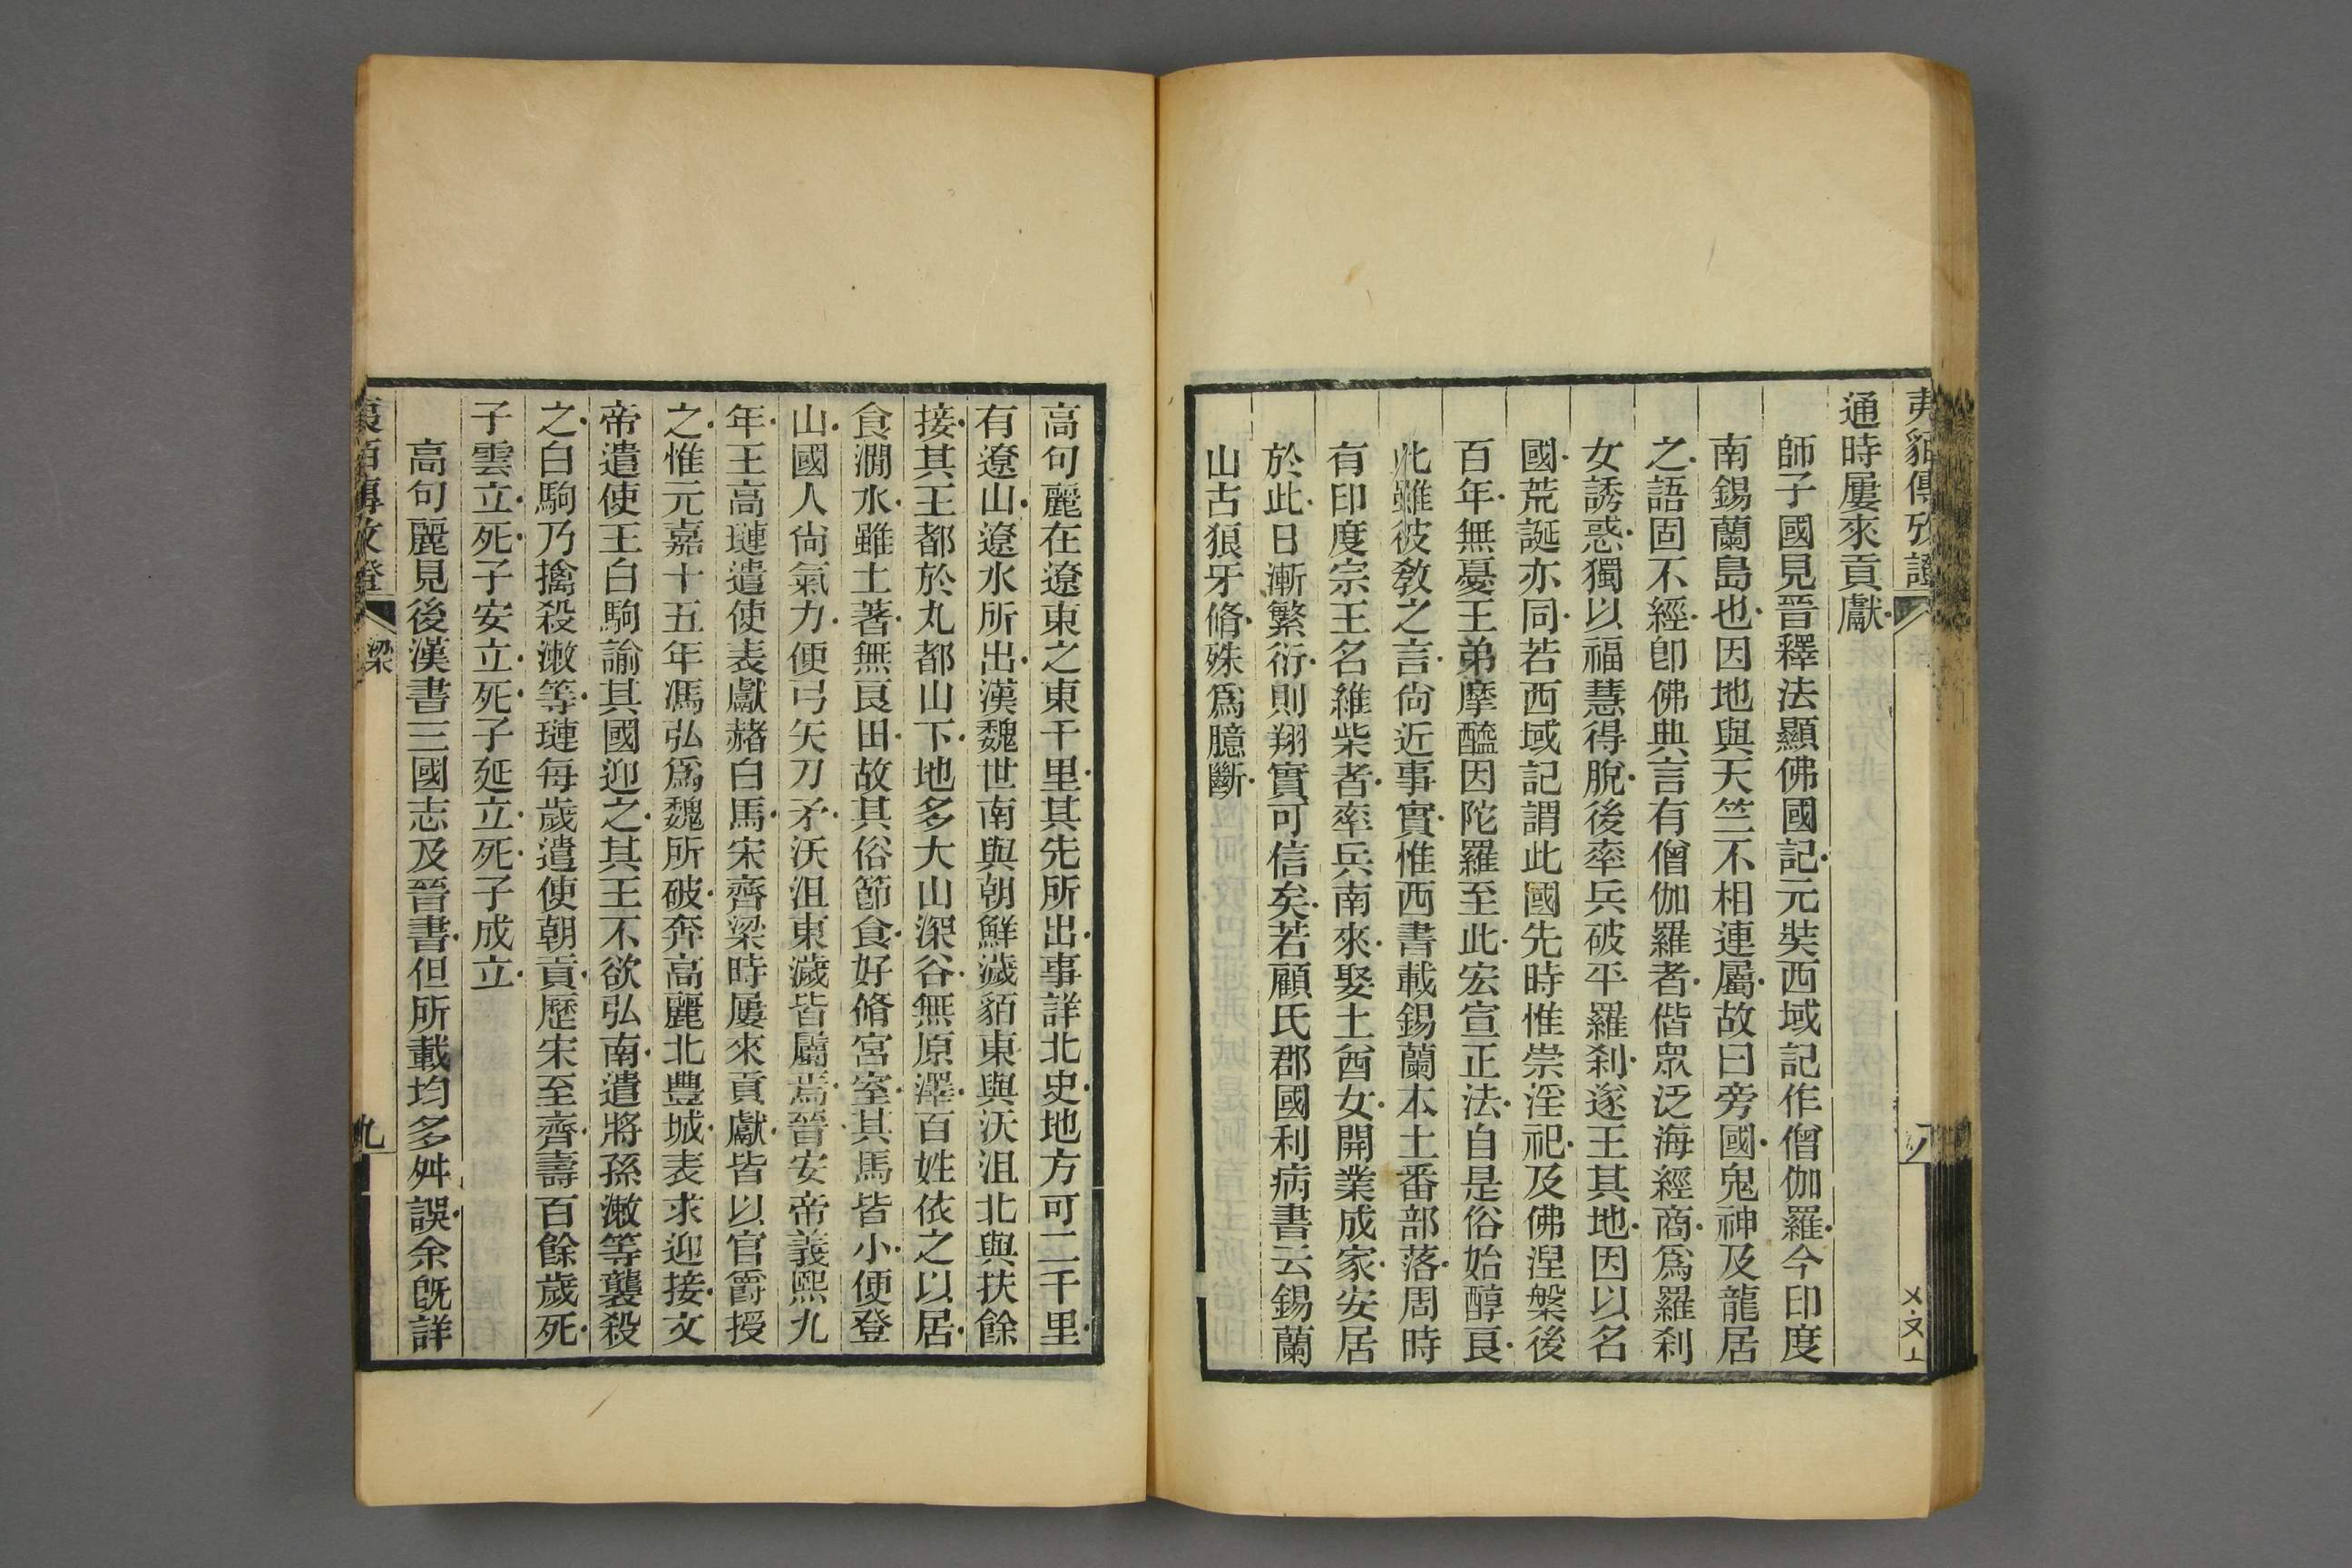 夷貊傳攷證
通時屢來貢獻
師子國見晉釋法顯佛國記元奘西域記作僧伽羅今印度
南錫蘭島也因地與天竺不相連屬故曰旁國鬼神及龍居
之語固不經卽佛典言有僧伽羅者偕眾泛海經商爲羅刹
女誘惑獨以福慧得脫後率兵破平羅刹遂王其地因以名
國荒誕亦同若西域記謂此國先時惟崇淫祀及佛涅槃後
百年無憂王弟摩醯因陀羅至此宏宣正法自是俗始醇良
此雖彼敎之言尙近事實惟西書載錫蘭本土番部落周時
有印度宗王名維柴者率兵南來娶土酋女開業成家安居
於此日漸繁衍則翔實可信矣若顧氏郡國利病書云錫蘭
山古狼牙脩殊爲臆斷
高句麗在遼東之東千里其先所出事詳北史地方可二千里
有遼山遼水所出漢魏世南與朝鮮濊貊東與沃沮北與扶餘
接其王都於丸都山下地多大山深谷無原澤百姓依之以居
食澗水雖土著無良田故其俗節食好脩宮室其馬皆小便登
山國人尙氣力便弓矢刀矛沃沮東濊皆屬焉晉安帝義熙九
年王高璉遣使表獻赭白馬宋齊梁時屢來貢獻皆以官爵授
之惟元嘉十五年馮弘爲魏所破奔高麗北豐城表求迎接文
帝遣使王白駒諭其國迎之其王不欲弘南遣將孫漱等襲殺
之白駒乃擒殺漱等璉每歲遣使朝貢歷宋至齊壽百餘歲死
子雲立死子安立死子延立死子成立
高句麗見後漢書三國志及晉書但所載均多舛誤余旣詳
夷貊傳攷證
梁
九